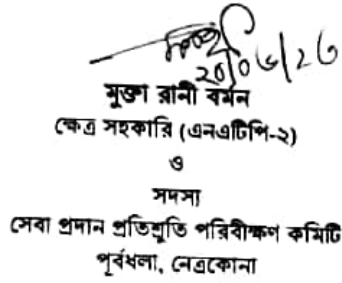 ২০/০৬/২৩
মুক্তা রানী বর্মন
ক্ষেত্র সহকারি (এনএটিপি-২)
ও
সদস্য
সেবা প্রদান প্রতিশ্রুতি পরিবীক্ষণ কমিটি
পূর্বধলা, নেত্রকোনা